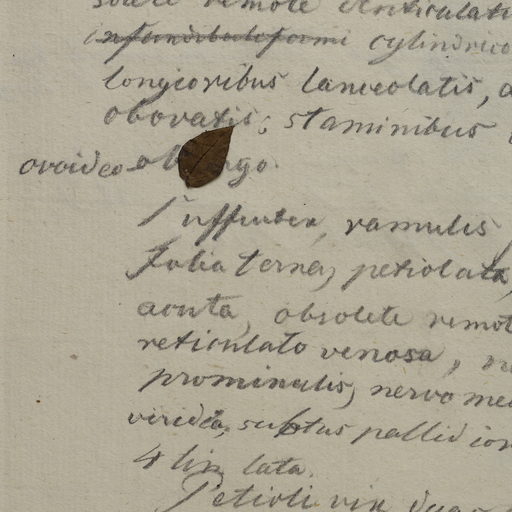 remote denticulati
infundibuliformi cylindrico
longioribus lanceolatis,
obovatis; staminibus
ovoideo-
Suffrutex, ramulis
Folia terna, petiolata,
acuta, obsolete remot
reticulato venosa,
prominulis, nervo me
viridia, subtus pallidior
4 lin lata.
Petioli vix duas